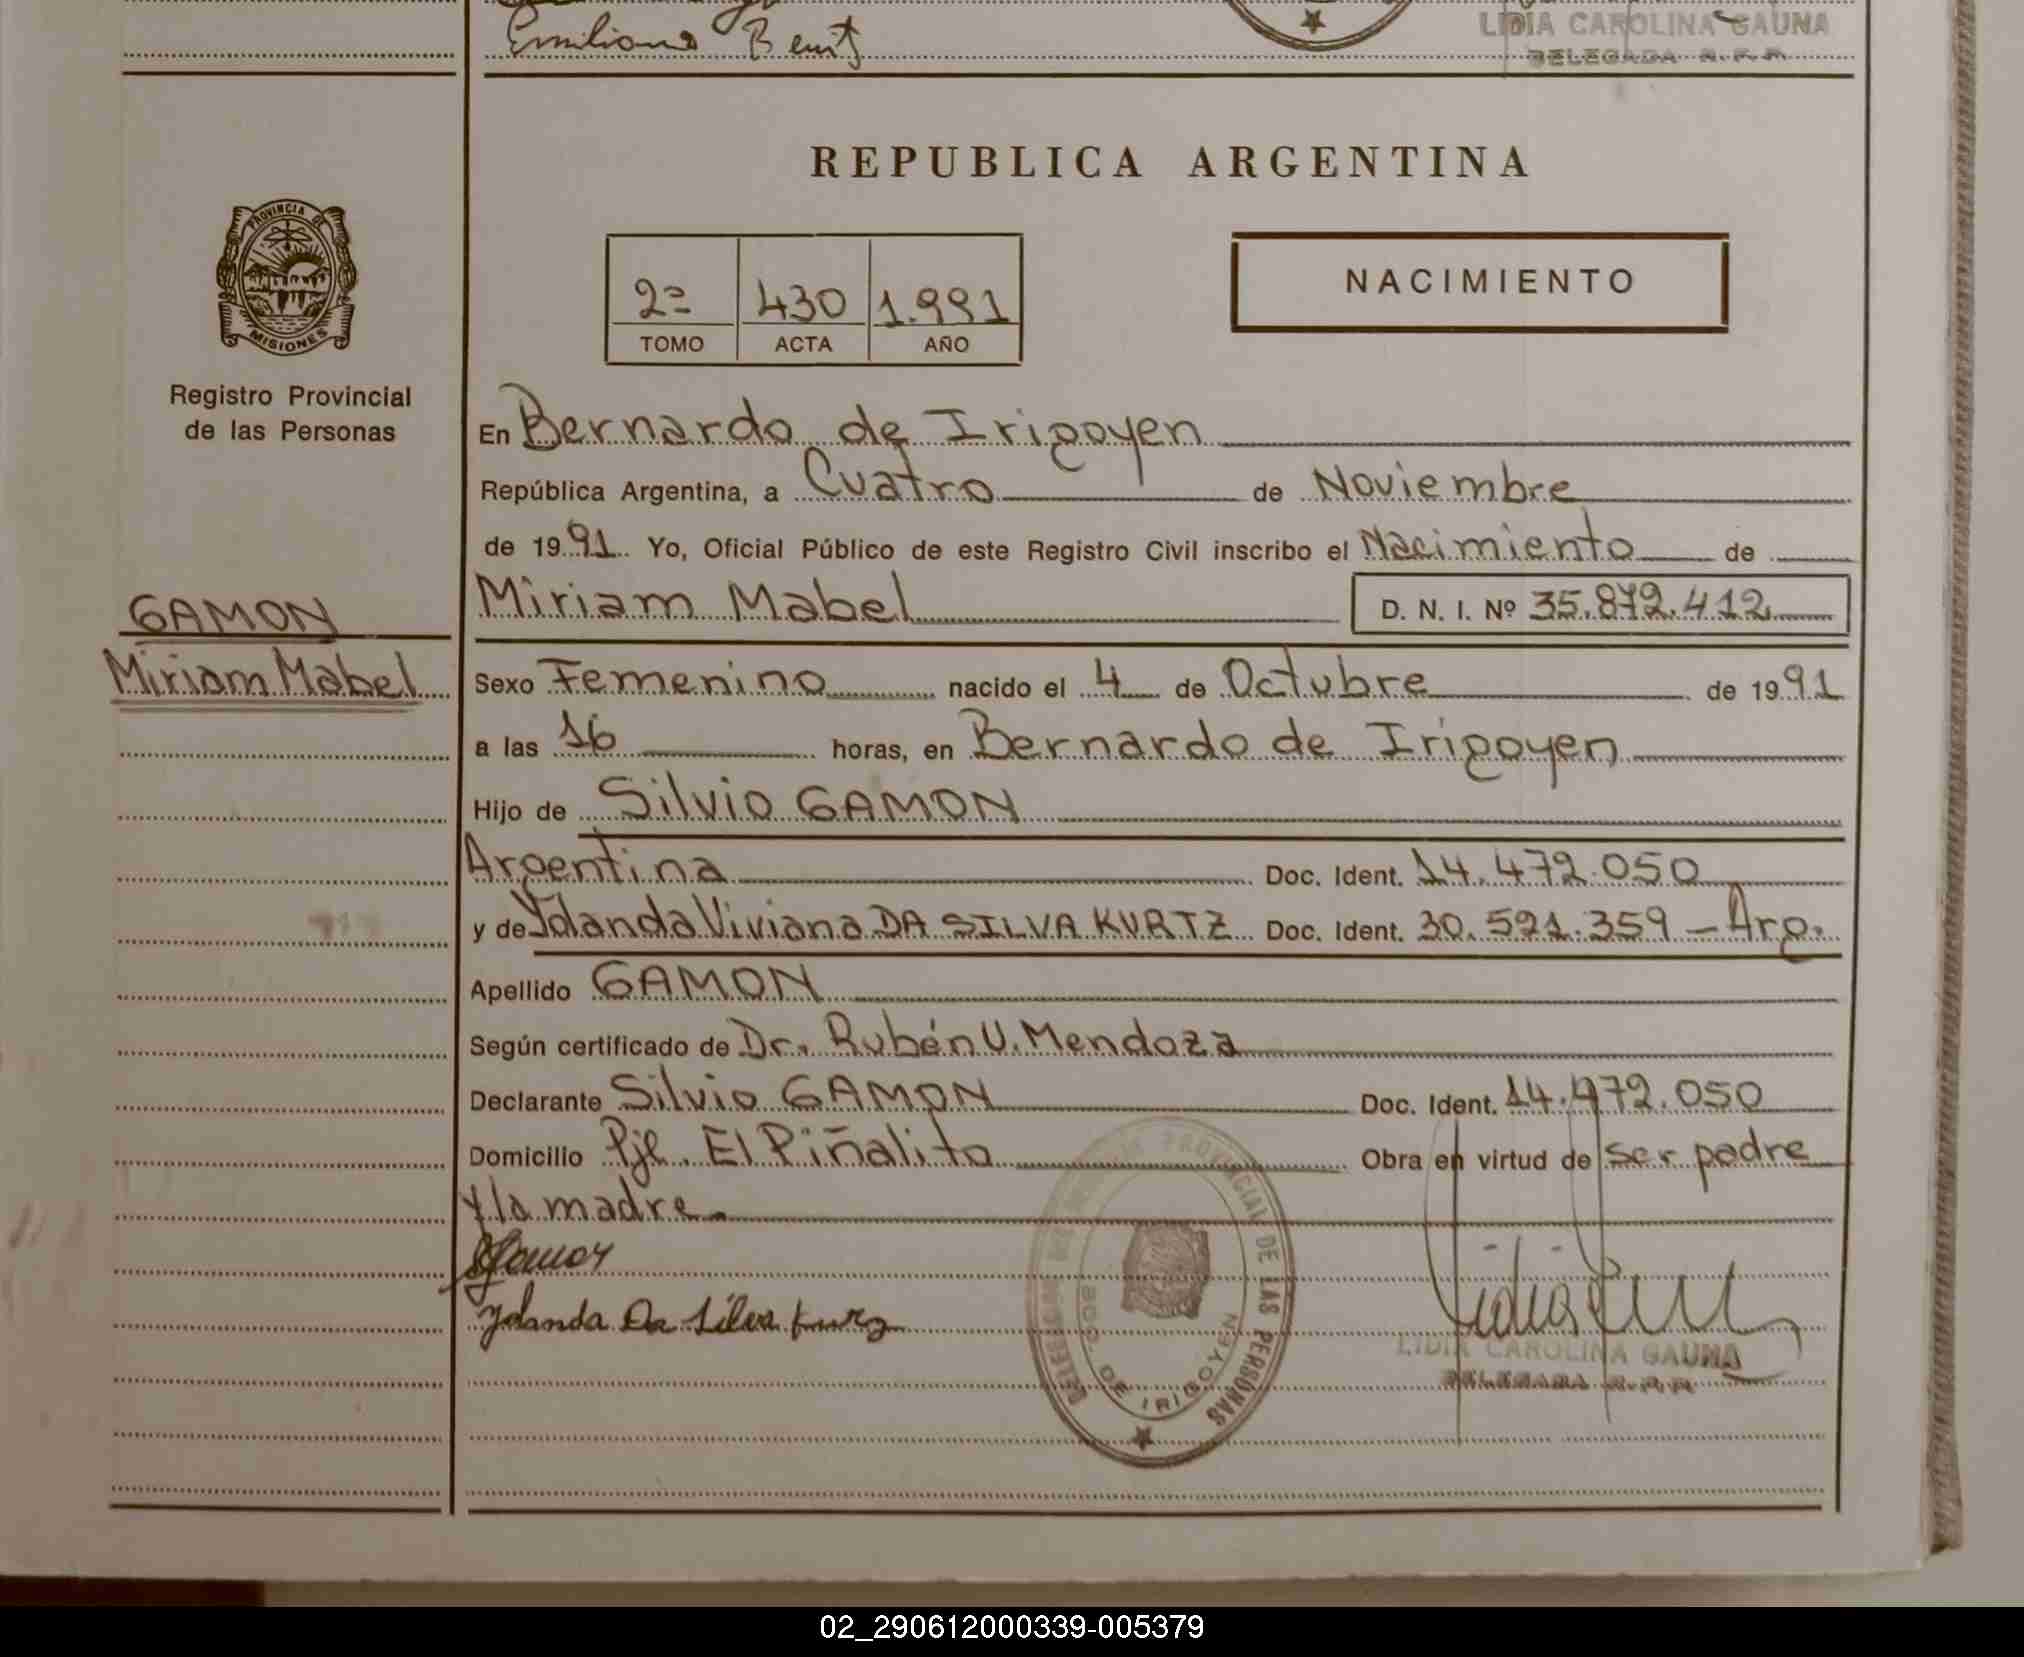 Emiliano Benit
LIDIA CAROLINA GAUNA
DELEGADA R.P.P.
REPUBLICA ARGENTINA
PROVINCIA DE
MISIONES
2º 430 1.991
TOMO ACTA AÑO
NACIMIENTO
Registro Provincial
de las Personas
En Bernardo de Irigoyen
República Argentina, a Cuatro de Noviembre
de 1991 Yo, Oficial Público de este Registro Civil inscribo el Nacimiento de
Miriam Mabel D. N. I. Nº 35.872.412
GAMON
Miriam Mabel
Sexo Femenino nacido el 4 de Octubre de 1991
a las 16 horas, en Bernardo de Irigoyen
Hijo de Silvio GAMON
Argentina Doc. Ident. 14.472.050
y de Yolanda Viviana DA SILVA KURTZ Doc. Ident. 30.521.359 - Arg.
Apellido GAMON
Según certificado de Dr. Rubén U. Mendoza
Declarante Silvio GAMON Doc. Ident. 14.472.050
Domicilio Pje. El Piñalito Obra en virtud de ser padre
y la madre.
SGamon
Yolanda Da Silva kurz
PROVINCIAL DE LAS PERSONAS
BDO. DE IRIGOYEN
LIDIA CAROLINA GAUNA
DELEGADA R.P.P.
02_290612000339-005379